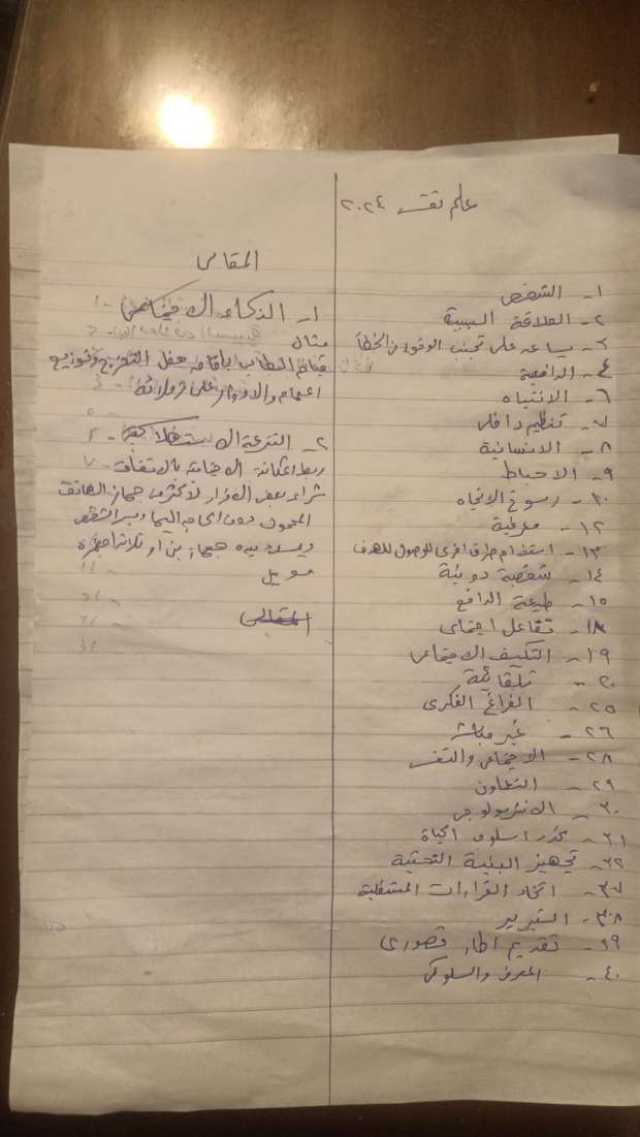 علم نفس ٢٠٢٤
١- الشخص
٢- العلاقة السببية
٣- يساعد على تجنب الوقوع في الخطأ
٤- الدافعية
٦- الانتباه
٧- تنظيم داخلى
٨- الانسانية
٩- الاحباط
١٠- رسوخ الاتجاه
١٢- معرفية
١٣- استخدام طرق اخرى للوصول للهدف
١٤- شخصية دونية
١٥- طبيعة الدافع
١٨- تفاعل اجتماعى
١٩- التكيف الاجتماعى
٢٠- تلقائية
٢٥- الفراغ الفكرى
٢٦- غير مباشر
٢٨- الاجتماعى والنفسى
٢٩- التعاون
٣٠- الانثربولوجى
٣١- اسلوب الحياة
٣٢- تجهيز البنية التحتية
٣٧- اتخاذ القرارات المستقبلية
٣٨- التبرير
٣٩- تقديم اطار تصورى
٤٠- المعرفى والسلوكى
المقالى
١- الذكاء الاجتماعى
مثال
قيام الطالب باقامة حفل التخرج وتوزيع
على زملائه
٢- النزعة الاستهلاكية
ربط المكانة الاجتماعية بالانفاق
شراء بعض الافراد لاكثر من جهاز الهاتف
المحمول دون الحاجة اليها
جهازين او ثلاثة اجهزة
موبيل
المقالى